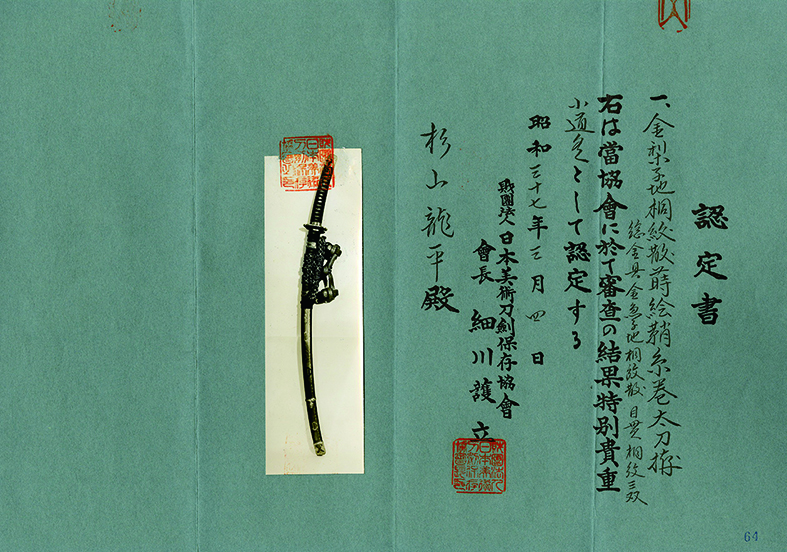 認定書
一、金梨子地桐紋散蒔絵鞘糸巻太刀拵
総金具金魚子地桐紋散 目貫桐紋三双
右は當協會に於て審査の結果特別貴重
小道具として認定する
昭和三十七年三月四日
財團法人日本美術刀剣保存協會
會長 細川護立
杉山龍平殿
64